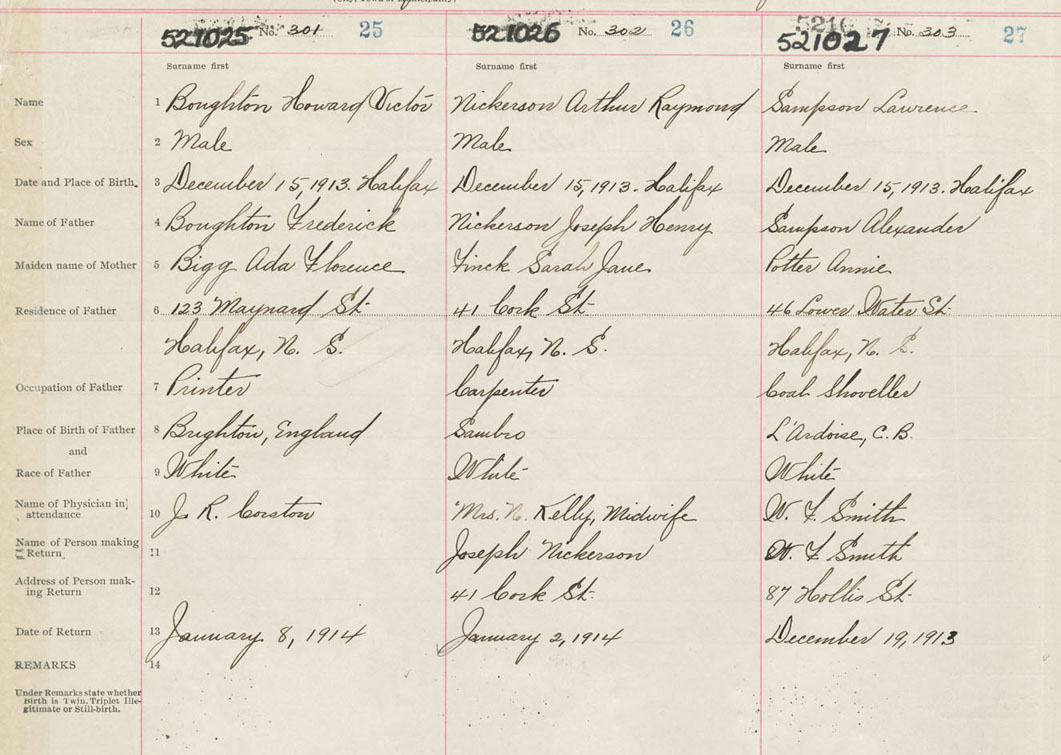 521025 No. 301 25 521026 No. 302 26 521027 No. 303 27
Surname first Surname first Surname first
Name 1 Boughton Howard Victor Nickerson Arthur Raymond Sampson Lawrence
Sex 2 Male Male Male
Date and Place of Birth. 3 December 15, 1913. Halifax December 15, 1913. Halifax December 15, 1913. Halifax
Name of Father 4 Boughton Frederick Nickerson Joseph Henry Sampson Alexander
Maiden name of Mother 5 Bigg Ada Florence Finck Sarah Jane Potter Annie
Residence of Father 6 123 Maynard St. 41 Cork St. 46 Lower Water St.
Halifax, N. S. Halifax, N. S. Halifax, N. S.
Occupation of Father 7 Printer Carpenter Coal Shoveller
Place of Birth of Father 8 Brighton, England Sambro L'Ardoise, C. B.
and
Race of Father 9 White White White
Name of Physician in attendance 10 J. R. Corston Mrs. N. Kelly, Midwife W. F. Smith
Name of Person making Return 11 Joseph Nickerson W. F. Smith
Address of Person mak-
ing Return 12 41 Cork St. 87 Hollis St.
Date of Return 13 January 8, 1914 January 2, 1914 December 19, 1913
REMARKS 14
Under Remarks state whether
Birth is Twin, Triplet Ille-
gitimate or Still-birth.